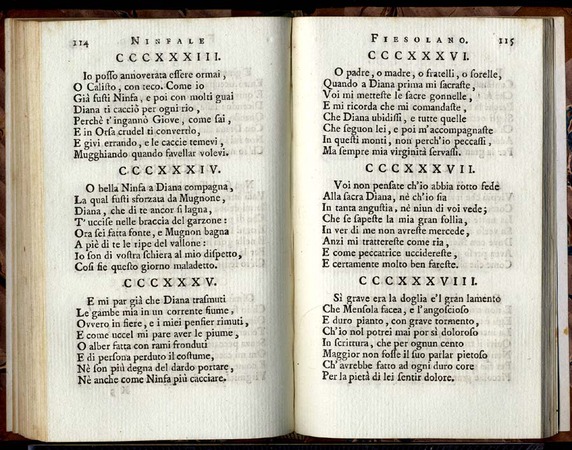 114 NINFALE
CCCXXXIII.
Io posso annoverata essere ormai,
O Calisto, con teco. Come io
Già fusti Ninfa, e poi con molti guai
Diana ti cacciò per ogni rio,
Perchè t'ingannò Giove, come sai,
E in Orsa crudel ti convertìo,
E givi errando, e le caccie temevi,
Mugghiando quando favellar volevi.
CCCXXXIV.
O bella Ninfa a Diana compagna,
La qual fusti sforzata da Mugnone,
Diana, che di te ancor si lagna,
T'uccise nelle braccia del garzone:
Ora sei fatta fonte, e Mugnon bagna
A piè di te le ripe del vallone:
Io son di vostra schiera al mio dispetto,
Così sie questo giorno maladetto.
CCCXXXV.
E mi par già che Diana trasmuti
Le gambe mia in un corrente fiume,
Ovvero in fiere, e i miei pensier rimuti,
E come uccel mi pare aver le piume,
O alber fatta con rami fronduti
E di persona perduto il costume,
Nè son più degna del dardo portare,
Nè anche come Ninfa più cacciare.
FIESOLANO. 115
CCCXXXVI.
O padre, o madre, o fratelli, o sorelle,
Quando a Diana prima mi sacraste,
Voi mi metteste le sacre gonnelle,
E mi ricorda che mi comandaste,
Che Diana ubidissi, e tutte quelle
Che seguon lei, e poi m'accompagnaste
In questi monti, non perch'io peccassi,
Ma sempre mia virginità servassi.
CCCXXXVII.
Voi non pensate ch'io abbia rotto fede
Alla sacra Diana, nè ch'io sia
In tanta angustia, nè niun di voi vede;
Che se sapeste la mia gran follia,
In ver di me non avreste mercede,
Anzi mi trattereste come ria,
E come peccatrice uccidereste,
E certamente molto ben fareste.
CCCXXXVIII.
Sì grave era la doglia e'l gran lamento
Che Mensola facea, e l'angoscioso
E duro pianto, con grave tormento,
Ch'io nol potrei mai por sì doloroso
In scrittura, che per ognun cento
Maggior non fosse il suo parlar pietoso
Ch'avrebbe fatto ad ogni duro core
Per la pietà di lei sentir dolore.